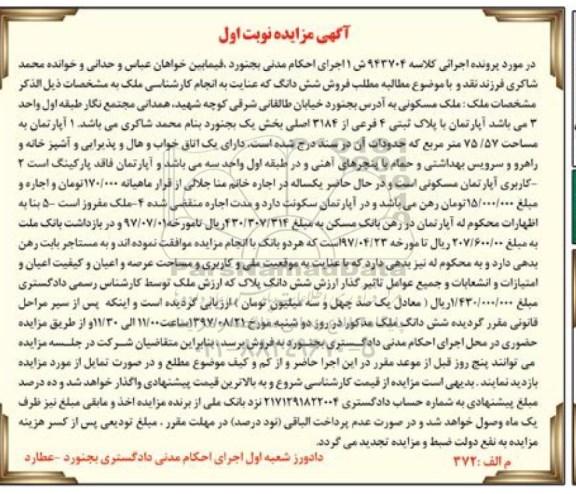 آگهی مزایده نوبت اول
در مورد پرونده اجرائی کلاسه ۹۴۳۷۰۴ ش ۱ اجرای احکام مدنی بجنورد ،فیمابین خواهان عباس و حدانی و خوانده محمد
شاکری فرزند نقد و با موضوع مطالبه مطلب فروش شش دانگ که عنایت به انجام کارشناسی ملک به مشخصات ذیل الذکر
مشخصات ملک : ملک مسکونی به آدرس بجنورد خیابان طالقانی شرقی کوچه شهید، همدانی مجتمع نگار طبقه اول واحد
۳ می باشد آپارتمان با پلاک ثبتی ۴ فرعی از ۳۱۸۴ اصلی بخش یک بجنورد بنام محمد شاکری می باشد. ۱ آپارتمان به
مساحت ۷۵/۵۷ متر مربع که حدودات آن در سند درج شده است. دارای یک اتاق خواب و هال و پذیرایی و آشپز خانه و
راهرو و سرویس بهداشتی و حمام با پنجرهای آهنی و در طبقه اول واحد سه می باشد و آپارتمان فاقد پارکینگ است ۲
-کاربری آپارتمان مسکونی است و در حال حاضر یکساله در اجاره خانم منا جلالی از قرار ماهیانه ۱۷۰/۰۰۰تومان و اجاره و
مبلغ ۱۵/۰۰۰/۰۰۰تومان رهن می باشد و در آپارتمان سکونت دارد و مدت اجاره منقضی شده ۴-ملک مفروز است -۵ بنا به
اظهارات محکوم له آپارتمان در رهن بانک مسکن به مبلغ ۴۳۰/۳۰۷/۳۱۴ریال تامورخه ۹۷/۰۷/۰۱ و در بازداشت بانک ملت
به مبلغ ۲۰۷/۶۰۰/۰۰ ریال تا مورخه ۹۷/۰۴/۲۳است که هردو بانک با انجام مزایده موافقت نموده اند و به مستاجر بابت رهن
بدهی دارد و به محکوم له نیز بدهی دارد که با عنایت به موقعیت ملی و کاربری و مساحت عرصه و اعیان و کیفیت اعیان و
امتیازات و انشعابات و جمیع عوامل تاثیر گذار ارزش شش دانگ پلاک که ارزش ملک توسط کارشناس رسمی دادگستری
مبلغ ۱/۴۳۰/۰۰۰/۰۰۰ریال ( معادل یک صد چهل و سه میلیون تومان ) ارزیابی گردیده است و اینکه پس از سیر مراحل
قانونی مقرر گردیده شش دانگ ملک مذکور در روز دو شنبه مورخ ۱۳۹۷/۰۸/۲۱ساعت ۱۱/۰۰ الی ۱۱/۳۰و از طریق مزایده
حضوری در محل اجرای احکام مدنی دادگستری بجنورد به فروش برسد، بنابراین متقاضیان شرکت در جلسه مزایده
می توانند پنج روز قبل از موعد مقرر در این اجرا حاضر و از کم و کیف موضوع مطلع و در صورت تمایل از مورد مزایده
بازدید نمایند . بدیهی است مزایده از قیمت کارشناسی شروع و به بالاترین قیمت پیشنهادی واگذار خواهد شد و ده درصد
مبلغ پیشنهادی به شماره حساب دادگستری ۲۱۷۱۲۹۱۸۲۲۰۰۴ نزد بانک ملی از برنده مزایده اخذ و مابقی مبلغ نیز ظرف
یک ماه وصول خواهد شد و در صورت عدم پرداخت الباقی (نود درصد) در مهلت مقرر ، مبلغ تودیعی پس از کسر هزینه
مزایده به نفع دولت ضبط و مزایده تجدید می گردد.
دادورز شعبه اول اجرای احکام مدنی دادگستری بجنورد -عطارد
م الف :۳۷۲
ParsNamadData
۰۲۱-۸۸۳۴۹۶۷۰-۵